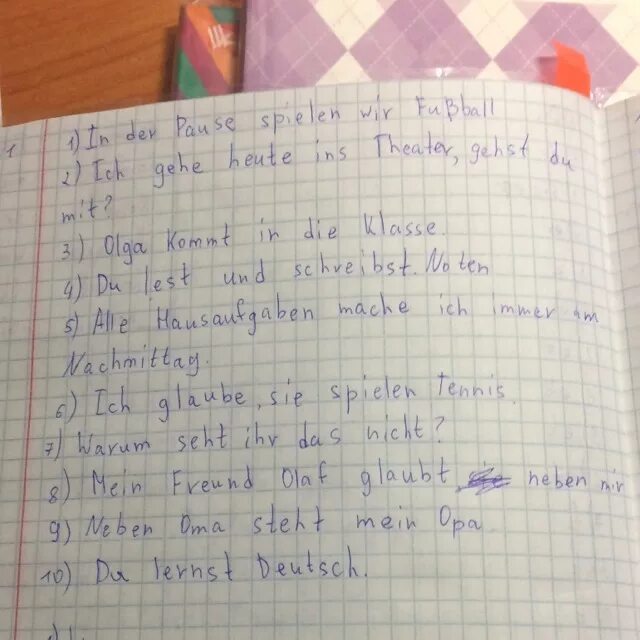 1) In der Pause spielen wir Fußball
2) Ich gehe heute ins Theater, gehst du
mit?
3) Olga kommt in die Klasse.
4) Du lest und schreibst. Noten
5) Alle Hausaufgaben mache ich immer am
Nachmittag.
6) Ich glaube, sie spielen tennis.
7) Warum seht ihr das nicht?
8) Mein Freund Olaf glaubt neben mir
9) Neben Oma steht mein Opa
10) Du lernst Deutsch.